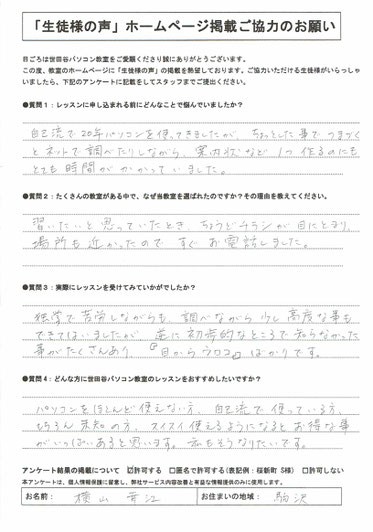 「生徒様の声」ホームページ掲載ご協力のお願い
日ごろは世田谷パソコン教室をご愛顧くださり誠にありがとうございます。
この度、教室のホームページに「生徒様の声」の掲載を熱望しております。ご協力いただける生徒様がいらっしゃ
いましたら、下記のアンケートに記載をしてスタッフまでご提出ください。
●質問1：レッスンに申し込まれる前にどんなことで悩んでいましたか？
自己流で20年パソコンを使ってきましたが、ちょっとした事でつまづく
とネットで調べたりしながら、案内状など1つ作るのにも
とても時間がかかっていました。
●質問2：たくさんの教室がある中で、なぜ当教室を選ばれたのですか？その理由を教えてください。
習いたいと思っていたとき、ちょうどチラシが目にとまり、
場所も近かったのですぐお電話しました。
●質問3：実際にレッスンを受けてみていかがでしたか？
独学で苦労しながらも、調べながら少し高度な事も
できてはいましたが、逆に初歩的なところで知らなかった
事がたくさんあり、『目からウロコ』ばかりです。
●質問4：どんな方に世田谷パソコン教室のレッスンをおすすめしたいですか？
パソコンをほとんど使えない方、自己流で使っている方、
もちろん未知の方、スイスイ使えるようになるとお得な事
がいっぱいあると思います。私もそうなりたいです。
アンケート結果の掲載について ☑許可する □匿名で許可する(表記例：桜新町 S様) □許可しない
本アンケートは、個人情報保護に留意し、弊社サービス内容改善と有益な情報提供のみに使用します。
お名前： 横山 幸江 お住まいの地域： 駒沢